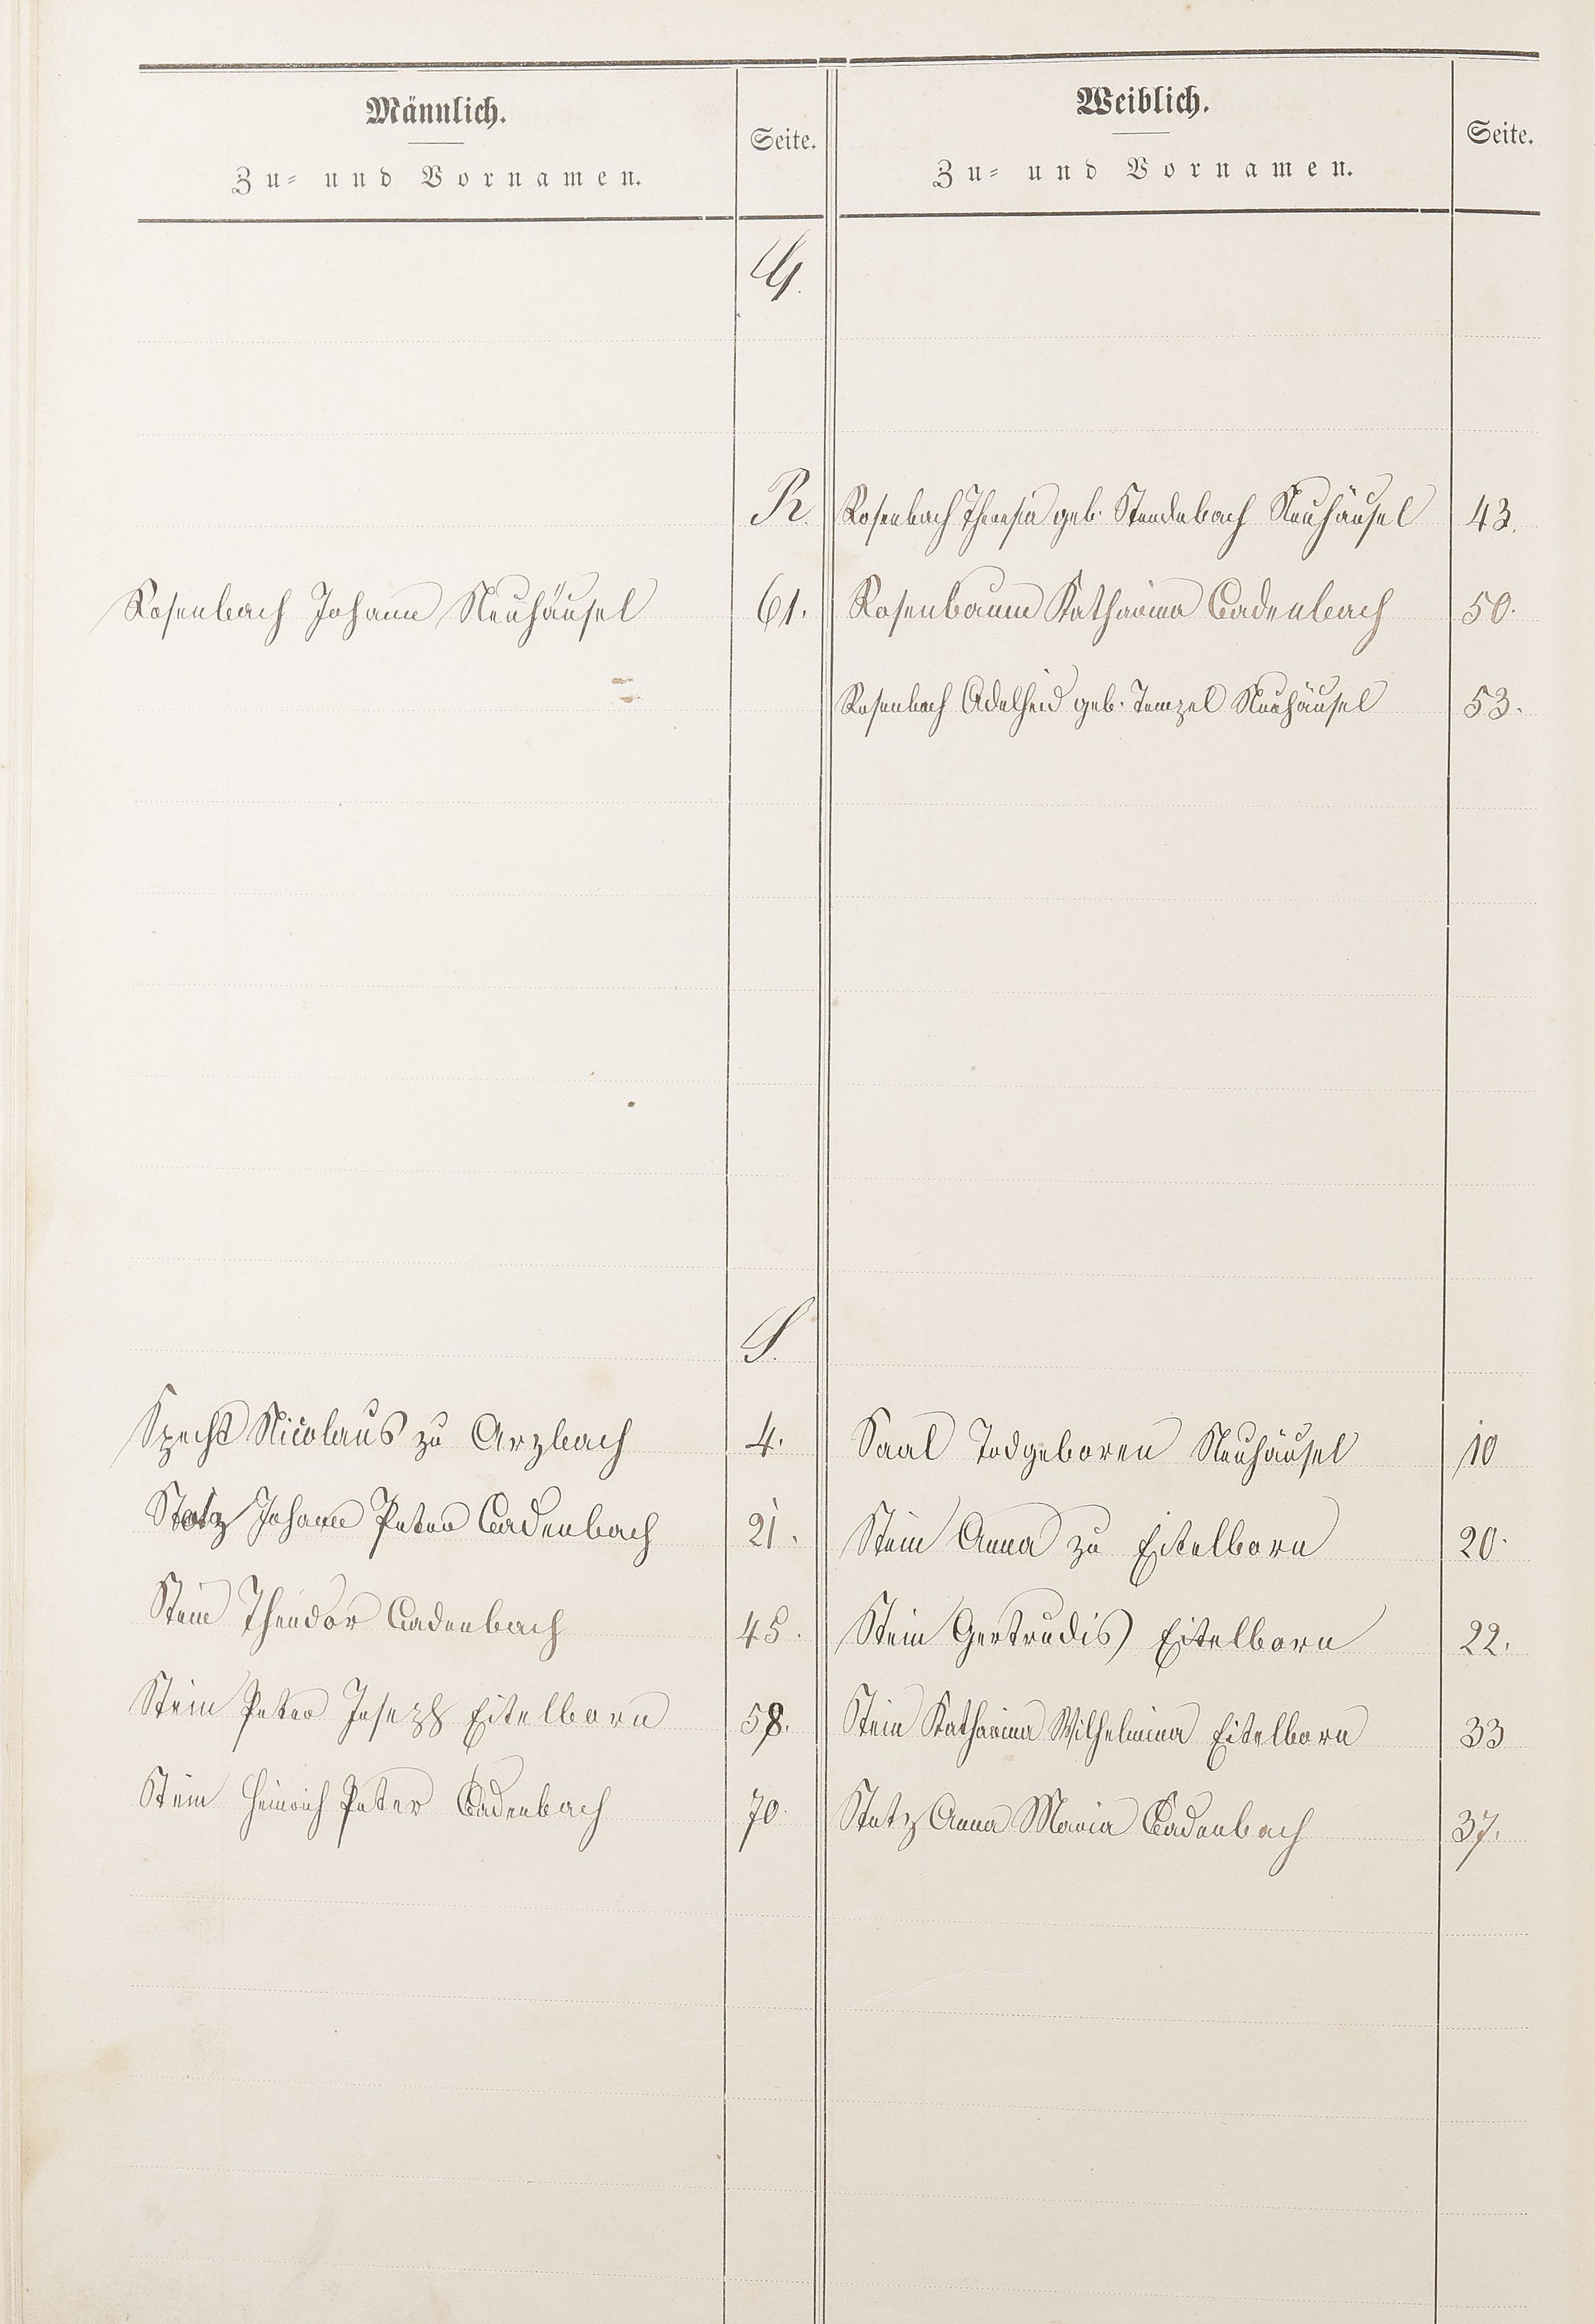 Männlich.
Zu- und Vornamen.
Seite.
Weiblich.
Zu- und Vornamen.
Seite.
Q.
R.
Rosenbach Theresia geb. Stendebach Neuhäusel 43.
Rosenbach Johann Neuhäusel 61.
Rosenbaum Katharina Cadenbach 50.
Rosenbach Adelheid geb. Neuhäusel 53.
S.
Specht Nicolaus zu Arzbach 4.
Saal Todgeboren Neuhäusel 10
Statz Johann Peter Cadenbach 21.
Stein Anna zu Eitelborn 20.
Stein Theodor Cadenbach 45.
Stein Gertrudis Eitelborn 22.
Stein Peter Joseph Eitelborn 58.
Stein Katharina Wilhelmina Eitelborn 33
Stein Heinrich Peter Cadenbach 70.
Statz Anna Maria Cadenbach 37.